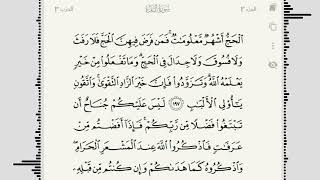 الجزء ٢ سُورَةُ البَقَرَةِ الحزب ٣
ٱلْحَجُّ أَشْهُرٌ مَّعْلُومَٰتٌ ۚ فَمَن فَرَضَ فِيهِنَّ ٱلْحَجَّ فَلَا رَفَثَ
وَلَا فُسُوقَ وَلَا جِدَالَ فِى ٱلْحَجِّ ۗ وَمَا تَفْعَلُوا۟ مِنْ خَيْرٍ
يَعْلَمْهُ ٱللَّهُ ۗ وَتَزَوَّدُوا۟ فَإِنَّ خَيْرَ ٱلزَّادِ ٱلتَّقْوَىٰ ۚ وَٱتَّقُونِ
يَٰٓأُو۟لِى ٱلْأَلْبَٰبِ ١٩٧ لَيْسَ عَلَيْكُمْ جُنَاحٌ أَن
تَبْتَغُوا۟ فَضْلًا مِّن رَّبِّكُمْ ۚ فَإِذَآ أَفَضْتُم مِّنْ
عَرَفَٰتٍ فَٱذْكُرُوا۟ ٱللَّهَ عِندَ ٱلْمَشْعَرِ ٱلْحَرَامِ ۖ
وَٱذْكُرُوهُ كَمَا هَدَىٰكُمْ وَإِن كُنتُم مِّن قَبْلِهِۦ